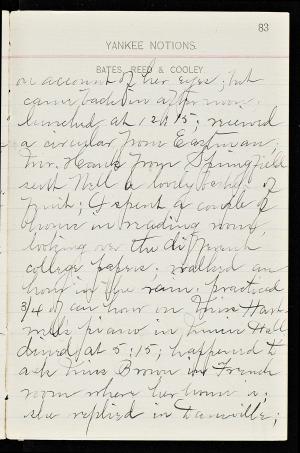 83
YANKEE NOTIONS.
BATES, REED & COOLEY.
on account of her eyes; but
came back in afternoon;
lunched at 12:15; received
a circular from Eastman;
Mr. Hawks from Springfield
sent Nell a lovely basket of
fruit; I spent a couple of
hours in reading room,
looking over the different
college papers; walked an
hour in the rain; practiced
3/4 of an hour on Miss
piano in Music Hall
dined at 5:15; happened to
ask Miss Brown in French
room where her home is;
she replied in Dansville;